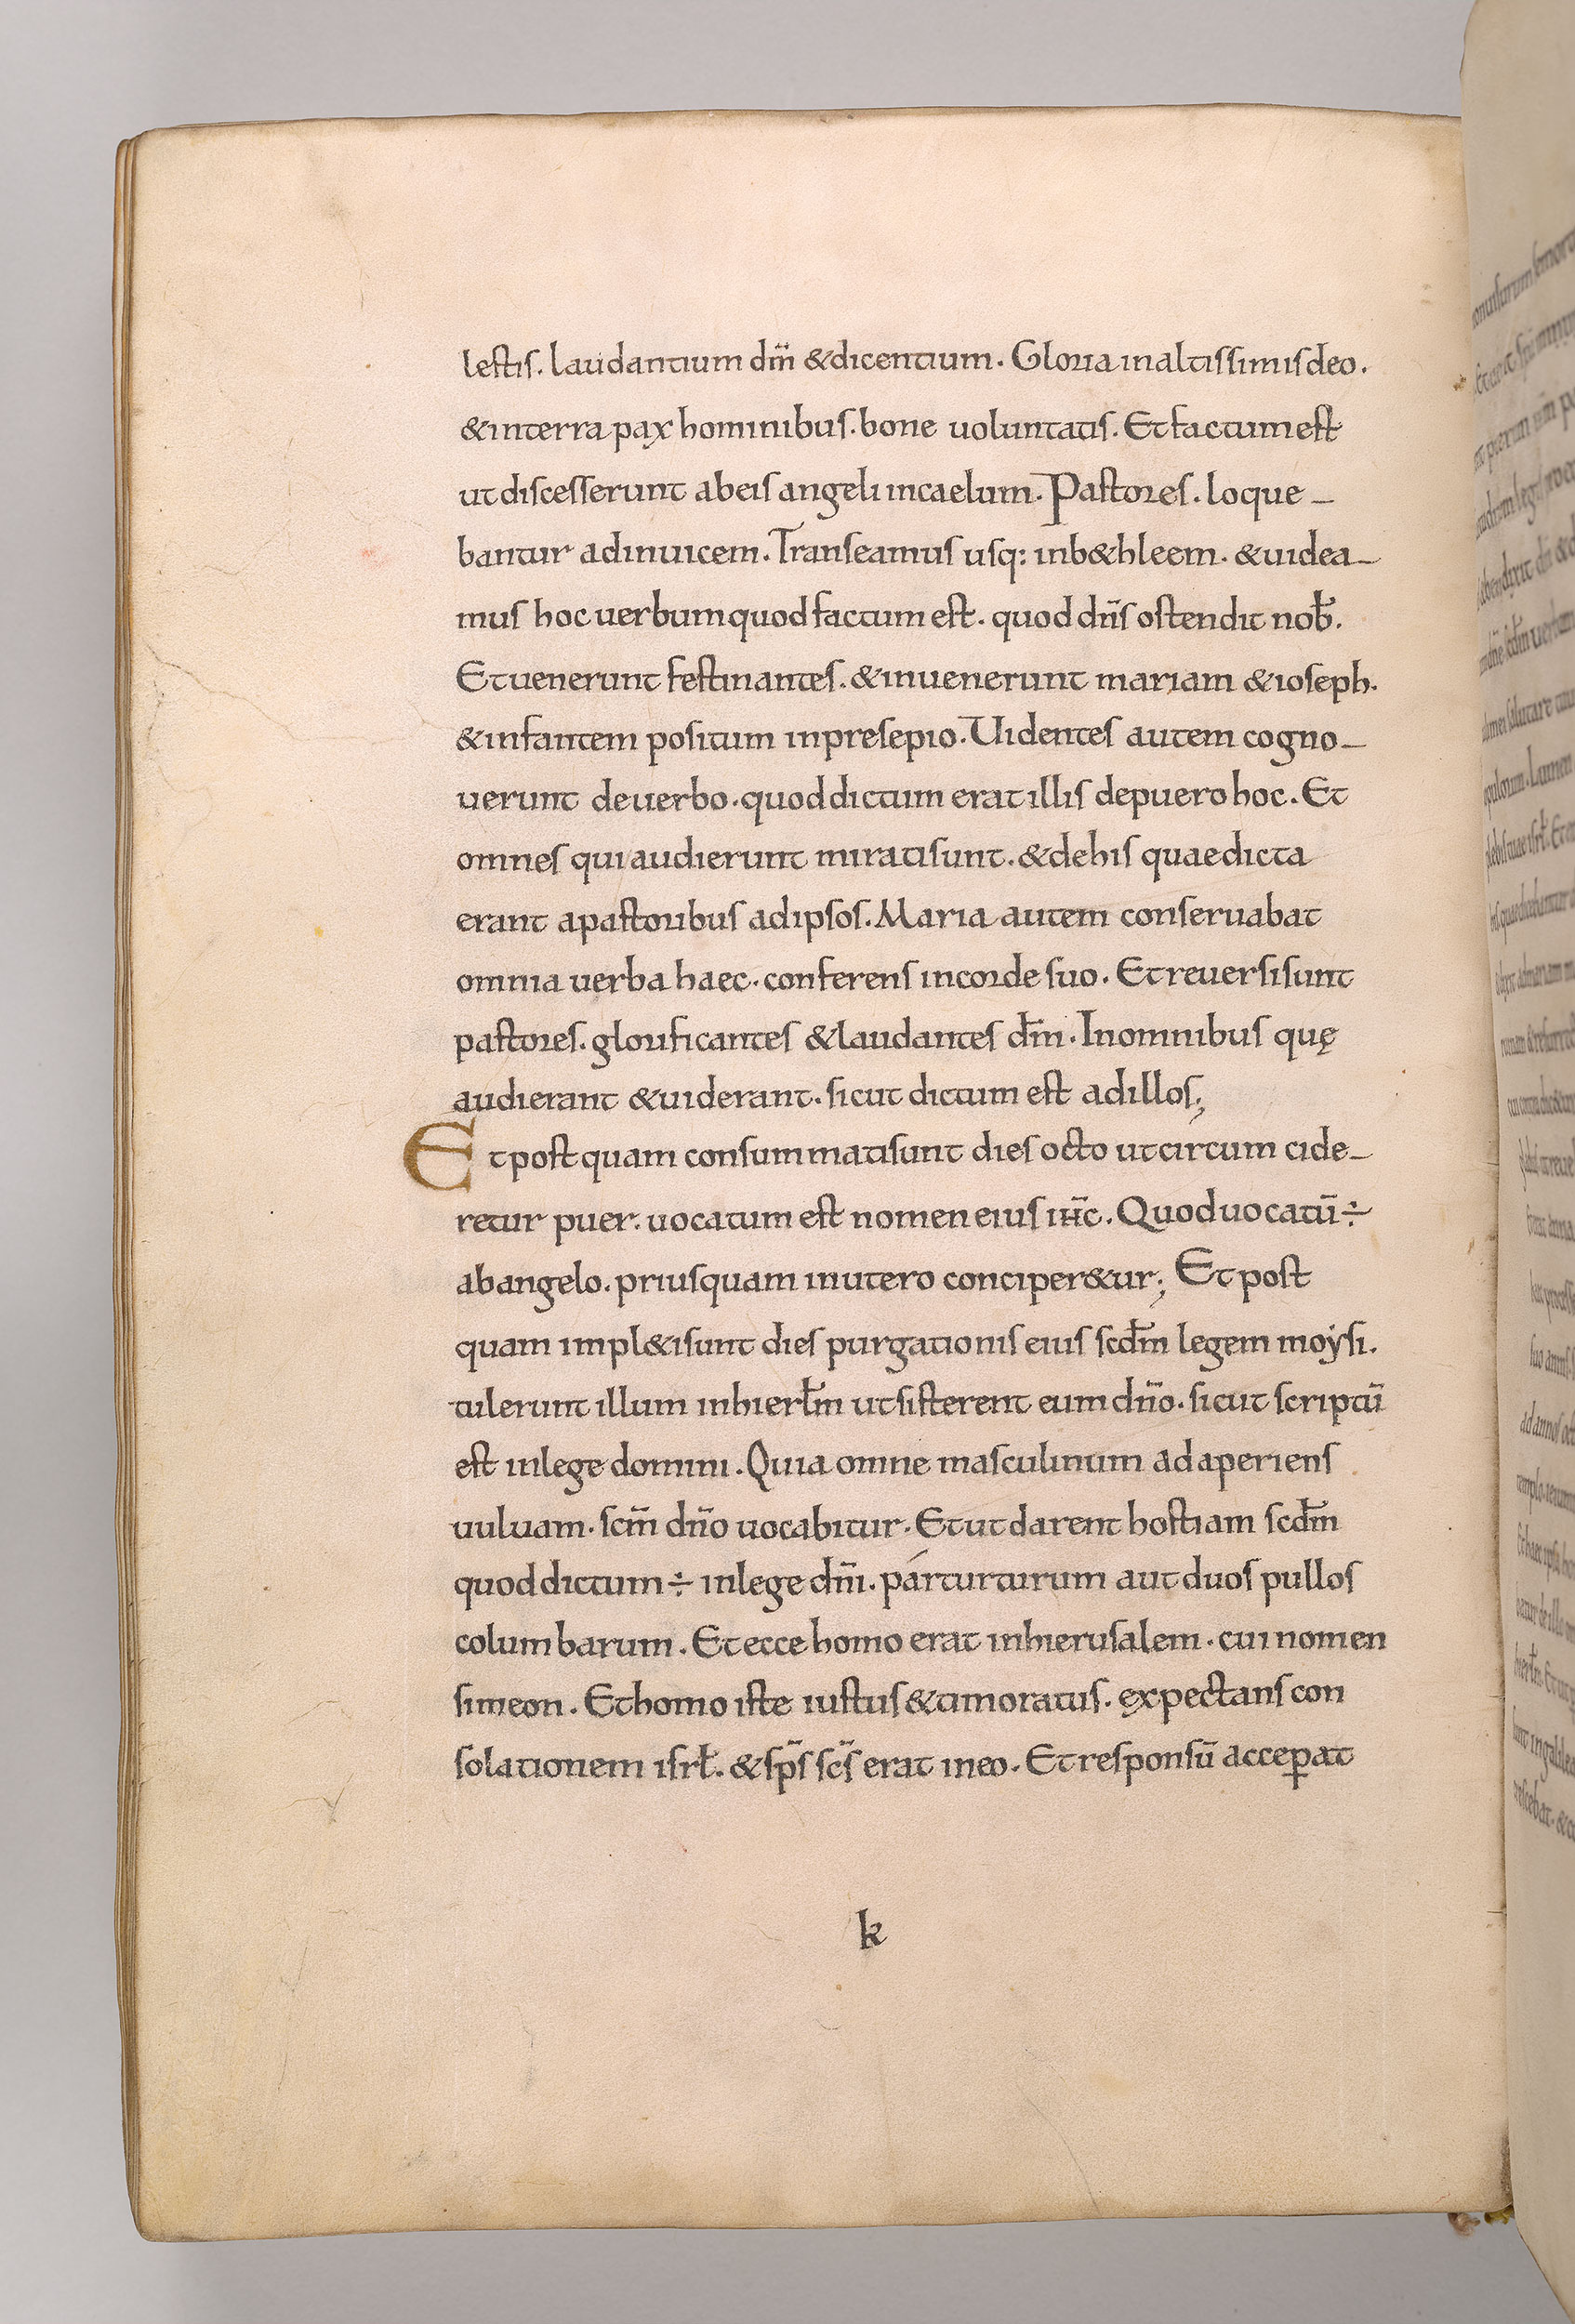 lestis. laudantium dm̅ & dicentium. Gloria in altissimis deo.
& in terra pax hominibus. bone uoluntatis. Et factum est
ut discesserunt ab eis angeli in caelum. Pastores. loque-
bantur ad inuicem. Transeamus usq: in b&hleem. & uidea-
mus hoc uerbum quod factum est. quod dn̅s ostendit nob̅.
Et uenerunt festinantes. & inuenerunt mariam & ioseph.
& infantem positum in presepio. Uidentes autem cogno-
uerunt de uerbo. quod dictum erat illis de puero hoc. Et
omnes qui audierunt mirati sunt. & de his quae dicta
erant a pastoribus ad ipsos. Maria autem conseruabat
omnia uerba haec. conferens in corde suo. Et reuersi sunt
pastores. glorificantes & laudantes dm̅. In omnibus quę
audierant & uiderant. sicut dictum est ad illos;
Et postquam consummati sunt dies octo ut circum cide-
retur puer. uocatum est nomen eius ih̅c. Quod uocatu̅ ÷
ab angelo. priusquam in utero conciper&ur; Et post
quam impl&i sunt dies purgationis eius scdm̅ legem moysi.
tulerunt illum in hierlm̅ ut sisterent eum dn̅o. sicut scriptu̅
est in lege domini. Quia omne masculinum adaperiens
uuluam. scm̅ dn̅o uocabitur. Et ut darent hostiam scdm̅
quod dictum ÷ in lege dn̅i. pár turturum aut duos pullos
columbarum. Et ecce homo erat in hierusalem. cui nomen
simeon. Et homo iste iustus & timoratus. expectans con
solationem isrl̅. & sp̅s sc̅s erat in eo. Et responsu̅ acceꝑat
k